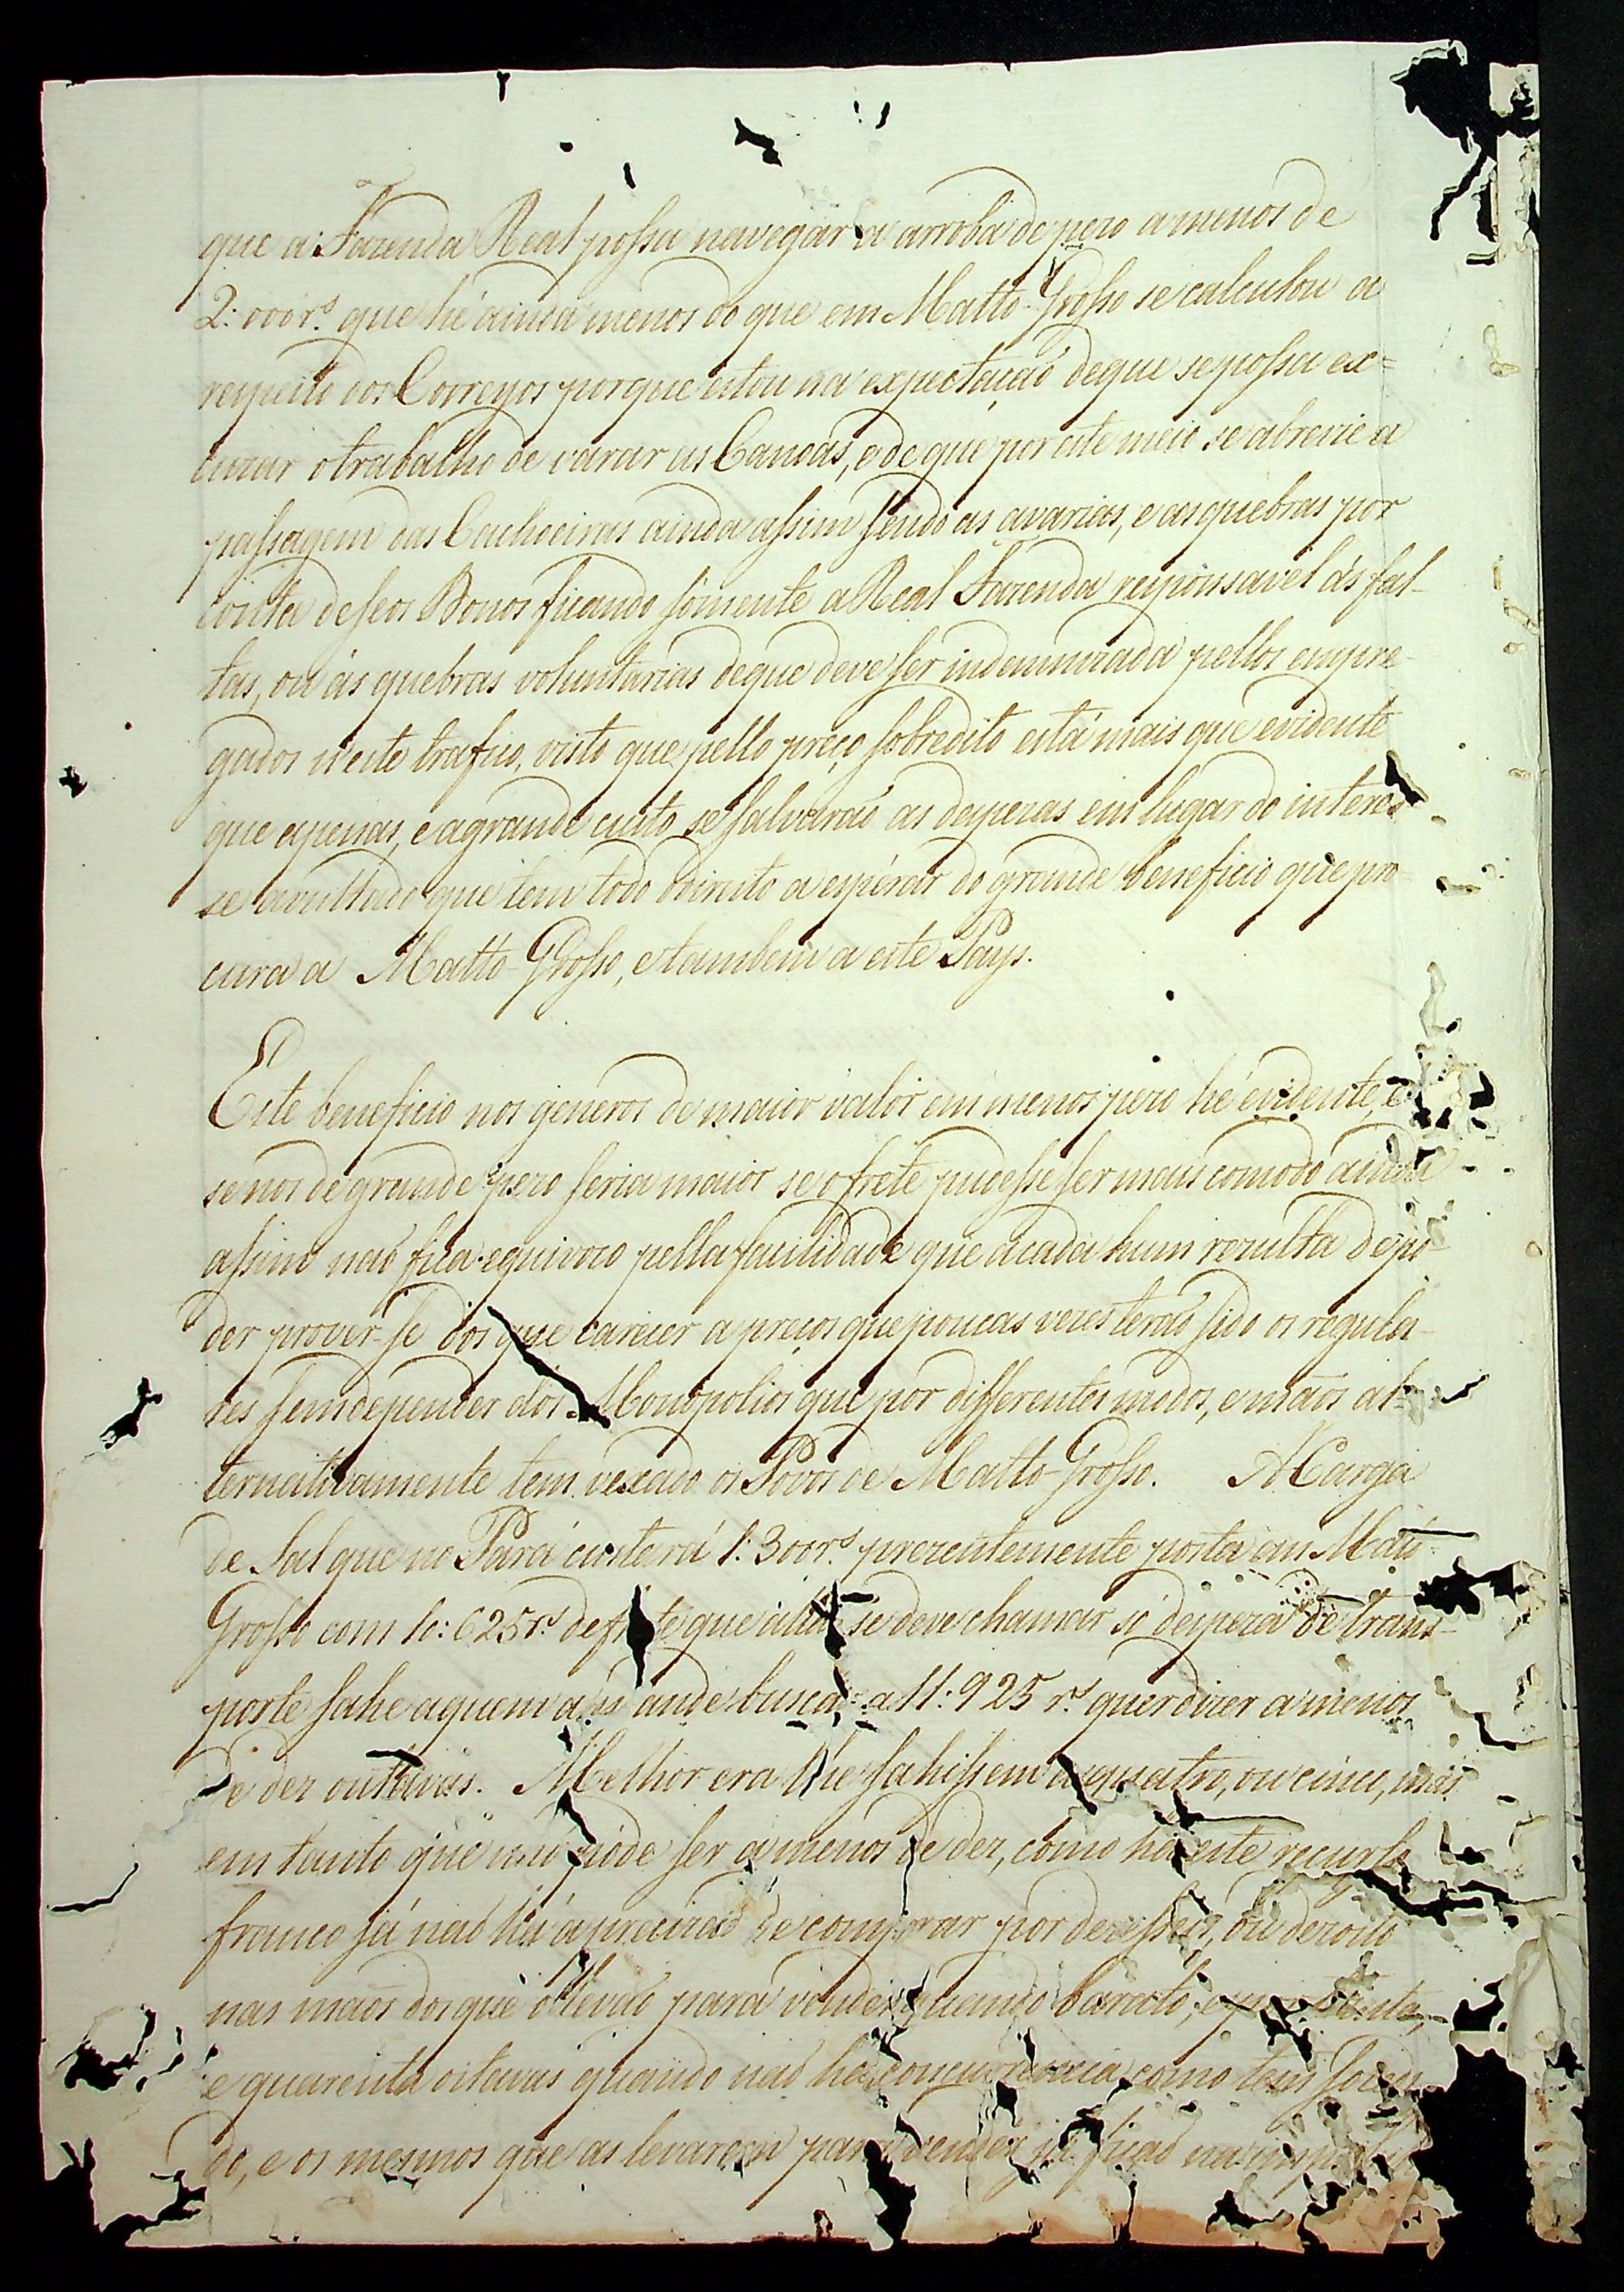 que a Fazenda Real possa navegar a arroba de pezo a menos de
2:000 r.s que hé ainda menos do que em Matto-Grosso se calculou a
respeito dos Correyos porque estou na expectação de que se possa ex=
cuzar o trabalho de varar as Canoas, e de que por este meio se abrevie a
passagem das Cachoeiras ainda assim sendo as avarias, e as quebras por
conta de seos Donos ficando sómente a Real Fazenda responsavel ás fal-
tas, ou ás quebras voluntarias de que deve ser indemnizada pellos empre-
gados n'este trafico, visto que pello preço sobredito está mais que evidente
que apenas, e a grande custo se salvarão as despezas em lugar do interes-
se avultado que tem todo o direito a espérar do grande beneficio que pro-
cura a Matto-Grosso, e tambem a este Pays.
Este beneficio nos generos de maior valor em menos pezo hé evidente, e
se nos de grande pezo seria maior se o frete pudesse ser mais comodo ainda
assim não fica equivoco pella facilidade que a cada hum rezulta de po-
der prover-se dos que carecer a preços que poucas vezes terão sido os regula-
res sem depender dos Monopolios que por differentes modos, e mãos al-
ternativamente tem vexado os Povos de Matto-Grosso. A Carga
de Sal que no Pará custará 1:300 r.s prezentemente posta em Mato
Grosso com 10:625 r.s de frete que aliás se deve chamar só despeza de trans-
porte sahe a quem a mande buscar a 11:925 r.s quer dizer a menos
de dez outavas. Melhor era lhe sahissem a quatro, ou cinco, mas
em tanto que não póde ser a menos de dez, como há este recurso
franco já não há a precizão de comprar por dezesseis, ou dezoito
nas mãos dos que o levão para vender quando barato, e por trinta,
e quarenta oitavas quando não ha concurrencia como tem socedi-
do, e os mesmos que as levarem para vender já ficão na